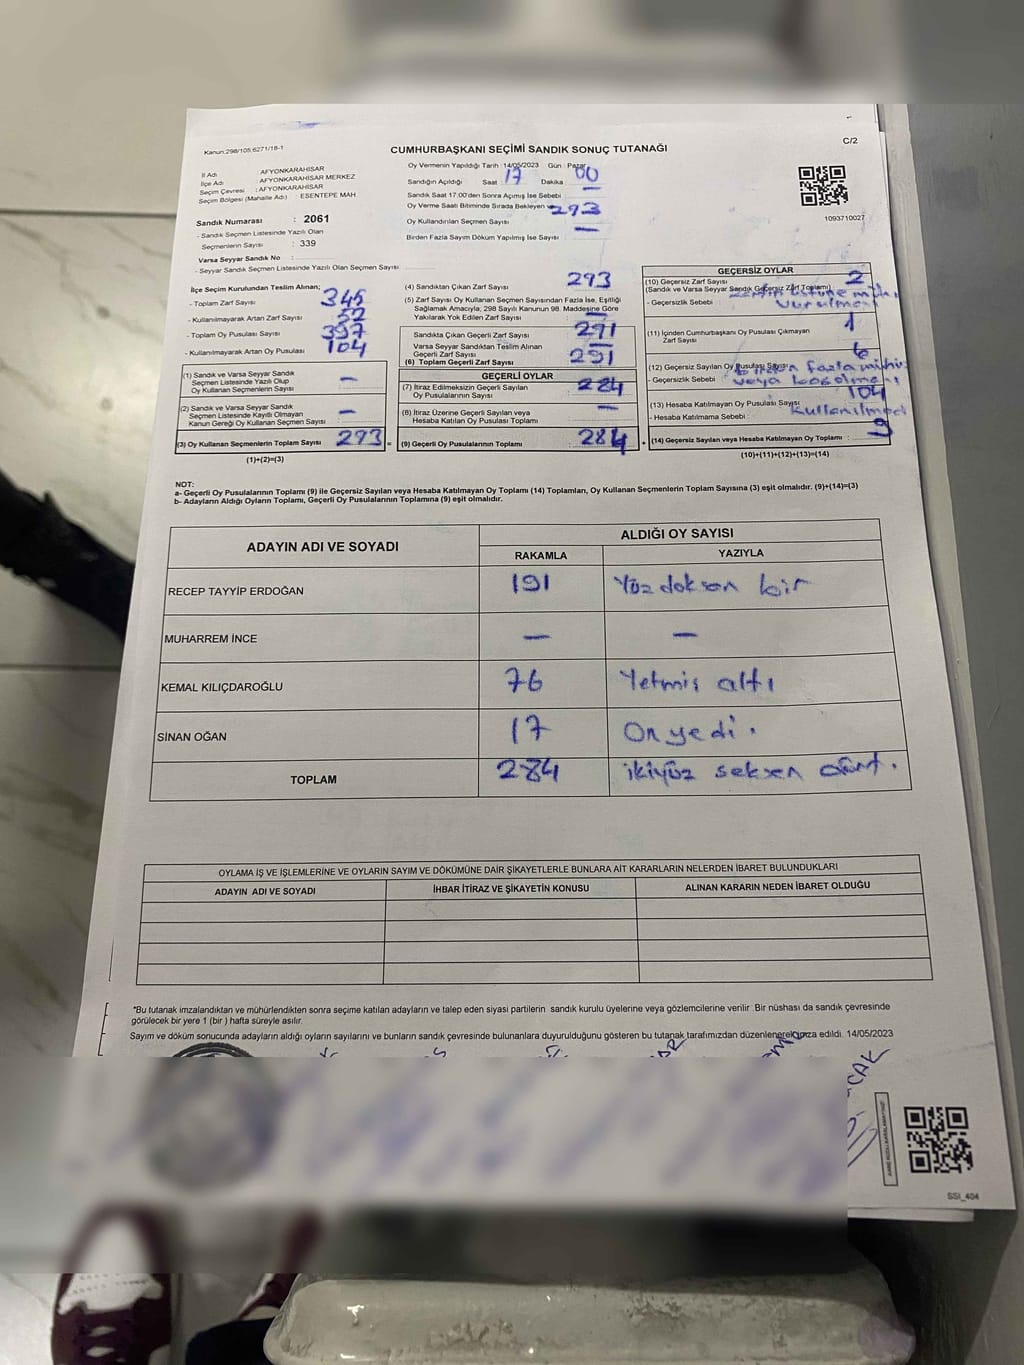 Kanun:298/105;6271/18-1
C/2
CUMHURBAŞKANI SEÇİMİ SANDIK SONUÇ TUTANAĞI
İl Adı AFYONKARAHİSAR
İlçe Adı : AFYONKARAHİSAR MERKEZ
Seçim Çevresi : AFYONKARAHİSAR
Seçim Bölgesi (Mahalle Adı) : ESENTEPE MAH
Sandık Numarası : 2061
- Sandık Seçmen Listesinde Yazılı Olan
Seçmenlerin Sayısı : 339
Varsa Seyyar Sandık No :
- Seyyar Sandık Seçmen Listesinde Yazılı Olan Seçmen Sayısı:
Oy Vermenin Yapıldığı Tarih : 14/05/2023 Gün : Pazar
Sandığın Açıldığı Saat : 17 Dakika : 00
Sandık Saat 17:00'den Sonra Açımış İse Sebebi : —
Oy Verme Saati Bitiminde Sırada Bekleyen ve
Oy Kullandırılan Seçmen Sayısı 293
Birden Fazla Sayım Döküm Yapılmış İse Sayısı : —
1093710027
İlçe Seçim Kurulundan Teslim Alınan;
- Toplam Zarf Sayısı : 345
- Kullanılmayarak Artan Zarf Sayısı : 52
- Toplam Oy Pusulası Sayısı : 397
- Kullanılmayarak Artan Oy Pusulası : 104
(1) Sandık ve Varsa Seyyar Sandık
Seçmen Listesinde Yazılı Olup
Oy Kullanan Seçmenlerin Sayısı —
(2) Sandık ve Varsa Seyyar Sandık
Seçmen Listesinde Kayıtlı Olmayan
Kanun Gereği Oy Kullanan Seçmen Sayısı —
(3) Oy Kullanan Seçmenlerin Toplam Sayısı : 293
(1)+(2)=(3)
(4) Sandıktan Çıkan Zarf Sayısı 293
(5) Zarf Sayısı Oy Kullanan Seçmen Sayısından Fazla İse, Eşitliği
Sağlamak Amacıyla, 298 Sayılı Kanunun 98. Maddesine Göre
Yakılarak Yok Edilen Zarf Sayısı : —
Sandıkta Çıkan Geçerli Zarf Sayısı : 291
Varsa Seyyar Sandıktan Teslim Alınan
Geçerli Zarf Sayısı —
(6) Toplam Geçerli Zarf Sayısı 291
GEÇERLİ OYLAR
(7) İtiraz Edilmeksizin Geçerli Sayılan
Oy Pusulalarının Sayısı 284
(8) İtiraz Üzerine Geçerli Sayılan veya
Hesaba Katılan Oy Pusulası Toplamı —
(9) Geçerli Oy Pusulalarının Toplamı 284
GEÇERSİZ OYLAR
(10) Geçersiz Zarf Sayısı 2
(Sandık ve Varsa Seyyar Sandık Geçersiz Zarf Toplamı)
- Geçersizlik Sebebi : üstüne vurulması
(11) İçinden Cumhurbaşkanı Oy Pusulası Çıkmayan
Zarf Sayısı 1
(12) Geçersiz Sayılan Oy Pusulası Sayısı 6
- Geçersizlik Sebebi : fazla mühür veya
(13) Hesaba Katılmayan Oy Pusulası Sayısı 104
- Hesaba Katılmama Sebebi :
(14) Geçersiz Sayılan veya Hesaba Katılmayan Oy Toplamı : 9
(10)+(11)+(12)+(13)=(14)
NOT:
a- Geçerli Oy Pusulalarının Toplamı (9) ile Geçersiz Sayılan veya Hesaba Katılmayan Oy Toplamı (14) Toplamları, Oy Kullanan Seçmenlerin Toplam Sayısına (3) eşit olmalıdır. (9)+(14)=(3)
b- Adayların Aldığı Oyların Toplamı, Geçerli Oy Pusulalarının Toplamına (9) eşit olmalıdır.
ADAYIN ADI VE SOYADI ALDIĞI OY SAYISI
RAKAMLA YAZIYLA
RECEP TAYYİP ERDOĞAN 191 Yüz doksan bir
MUHARREM İNCE — —
KEMAL KILIÇDAROĞLU 76 Yetmiş altı
SİNAN OĞAN 17 On yedi.
TOPLAM 284 ikiyüz seksen dört.
OYLAMA İŞ VE İŞLEMLERİNE VE OYLARIN SAYIM VE DÖKÜMÜNE DAİR ŞİKAYETLERLE BUNLARA AİT KARARLARIN NELERDEN İBARET BULUNDUKLARI
ADAYIN ADI VE SOYADI İHBAR İTİRAZ VE ŞİKAYETİN KONUSU ALINAN KARARIN NEDEN İBARET OLDUĞU
*Bu tutanak imzalandıktan ve mühürlendikten sonra seçime katılan adayların ve talep eden siyasi partilerin sandık kurulu üyelerine veya gözlemcilerine verilir. Bir nüshası da sandık çevresinde
görülecek bir yere 1 (bir ) hafta süreyle asılır.
Sayım ve döküm sonucunda adayların aldığı oyların sayılarını ve bunların sandık çevresinde bulunanlara duyurulduğunu gösteren bu tutanak tarafımızdan düzenlenerek imza edildi. 14/05/2023
SSI_404